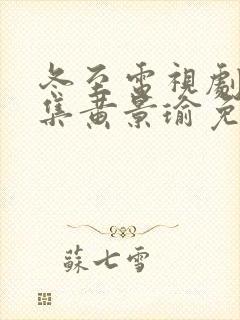 冬至電視劇
集黃景瑜免
蘇七雪